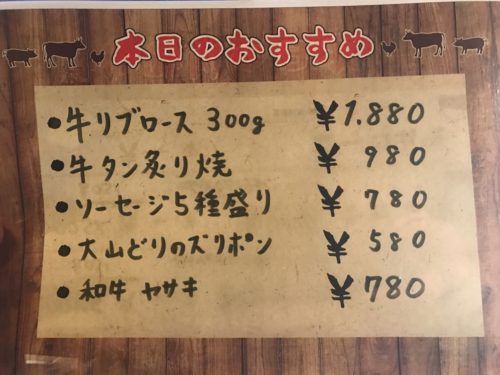 本日のおすすめ
•牛リブロース 300g ¥1.880
•牛タン炙り焼 ¥980
•ソーセージ5種盛り ¥780
•大山どりのズリポン ¥580
•和牛 ヤサキ ¥780